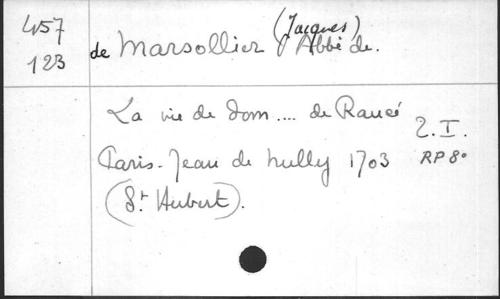 457
123
de Marsollier (Jacques) Abbé de.
La vie de Dom .... de Rancé
2. I.
Paris - Jean de nully 1703
RP 8°
(St Hubert).